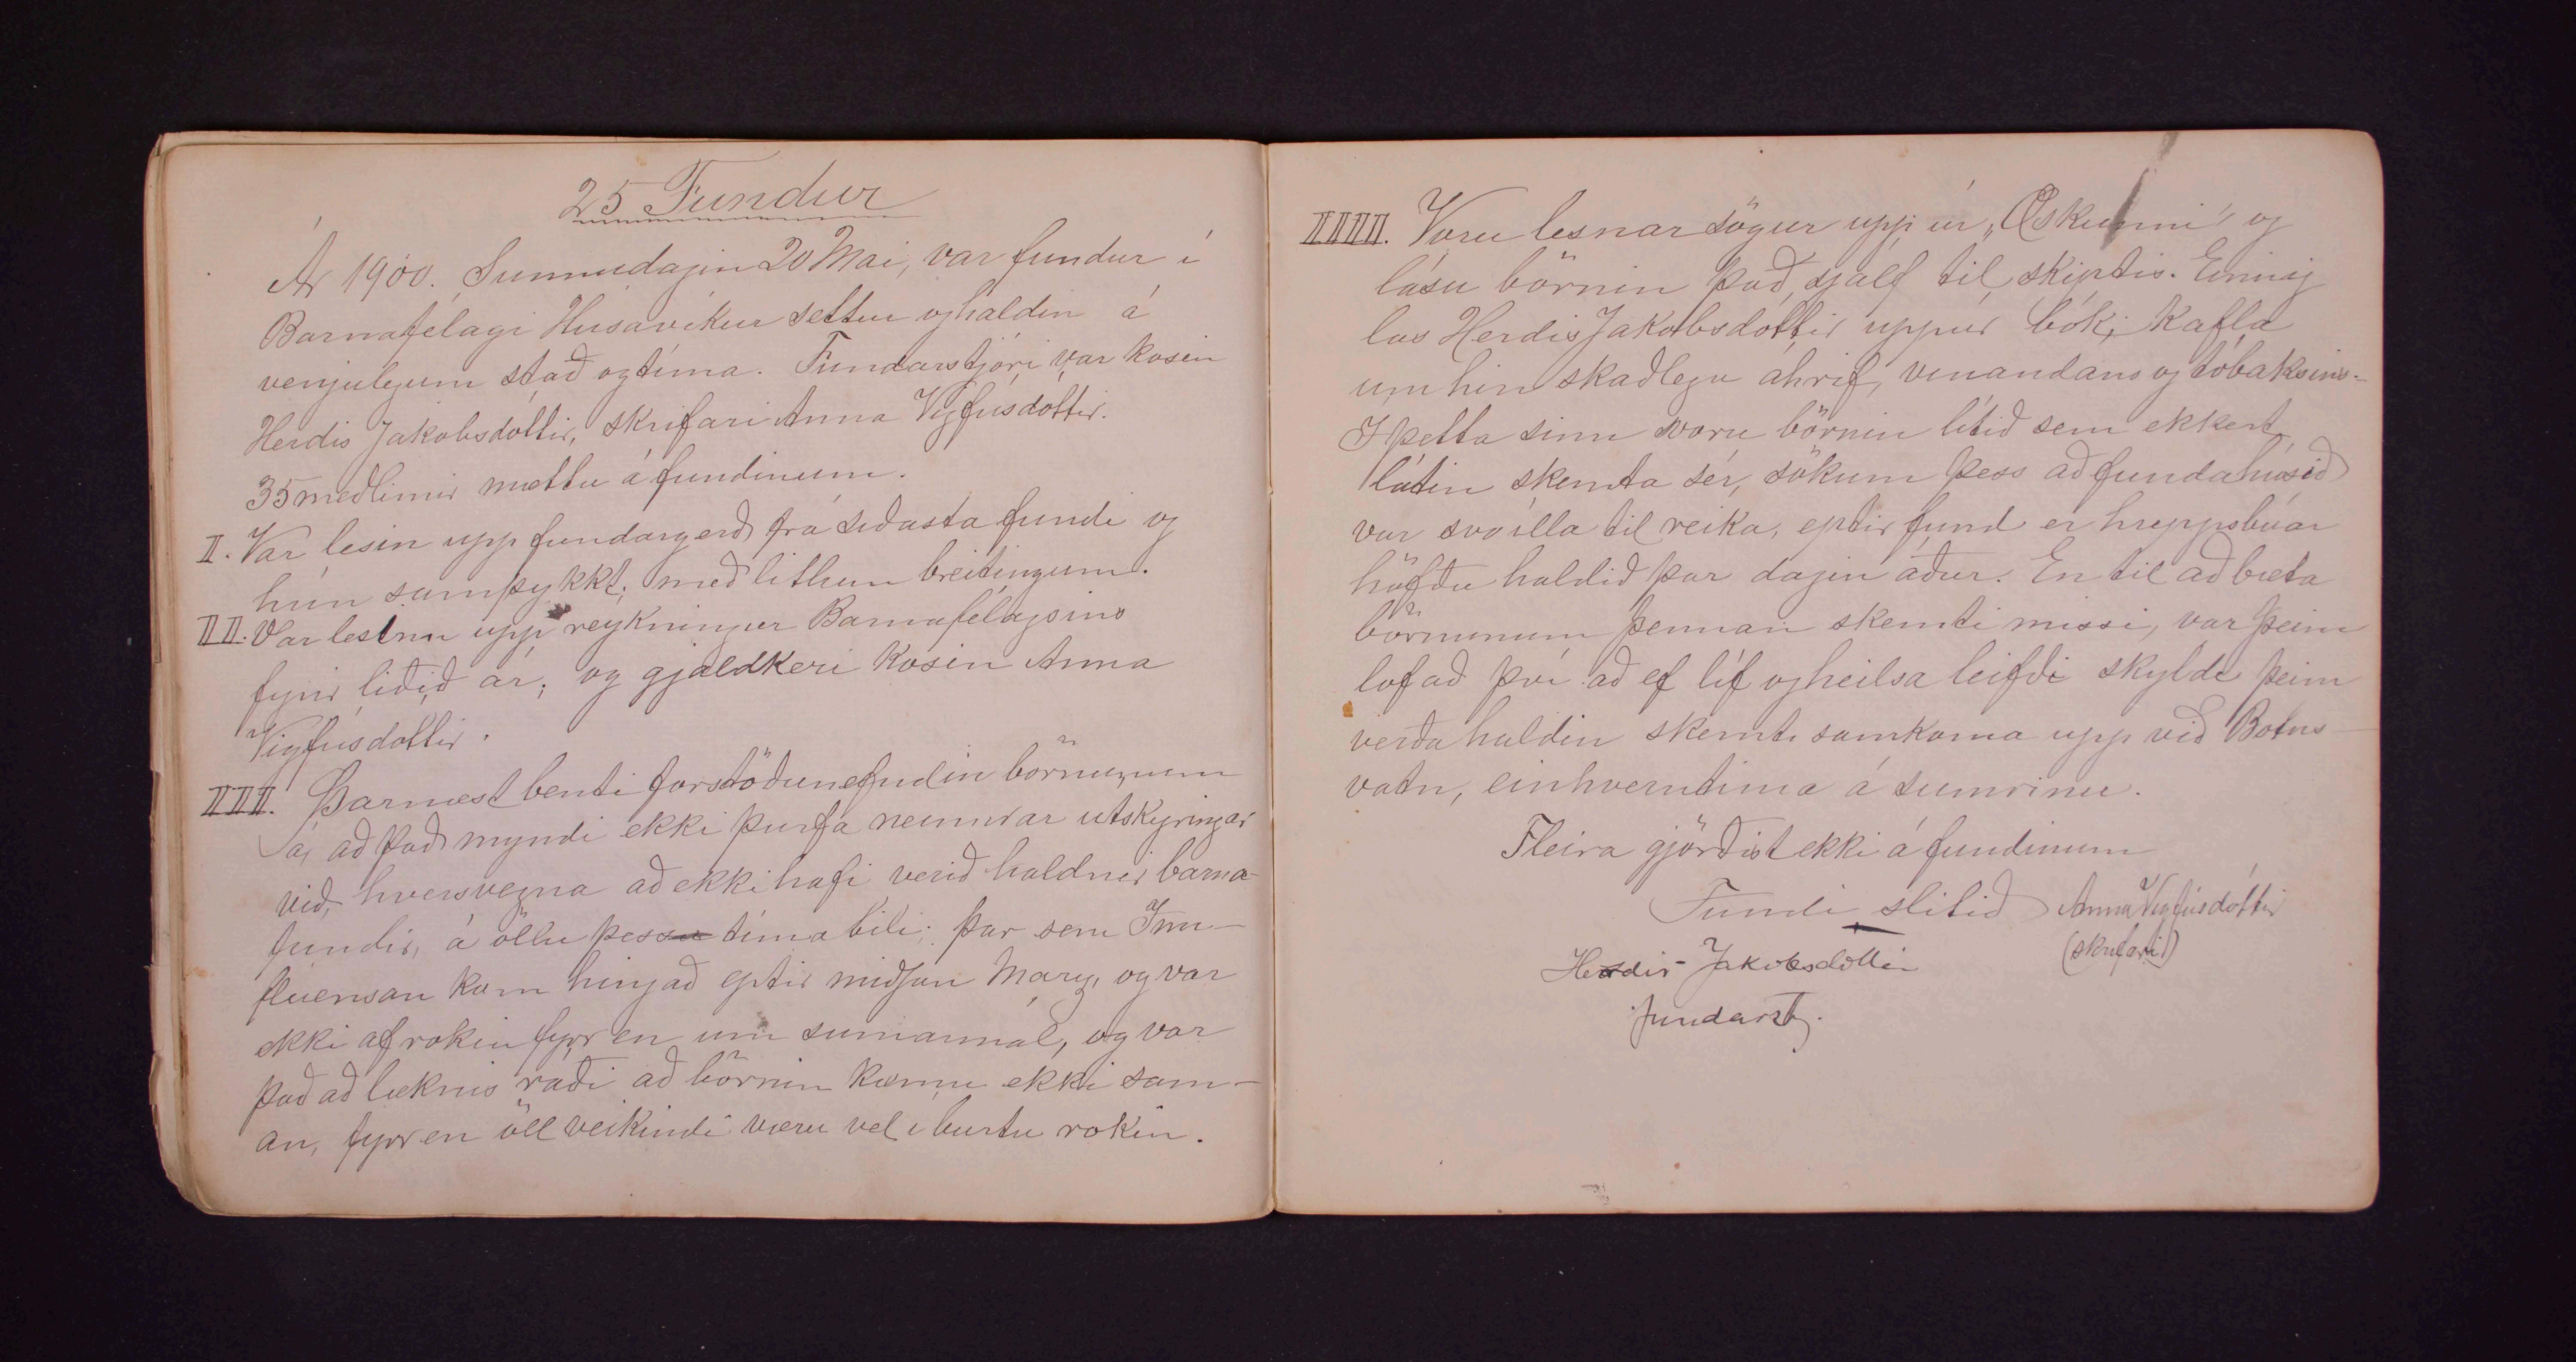 25 Fundur
Ár 1900. Sunnudagin 20 Mai, var fundur í
Barnafélagi Húsavíkur settur og haldin á
venjulegum stað og tíma. Fundarstjóri var kosin
Herdís Jakobsdóttir, skrifari Anna Vigfúsdóttir.
35 meðlimir mættu á fundinum.
II. Var lesin upp fundargerð frá síðasta fundi og
hún samþykkt, með litlum breitingum.
III. Var lesinn upp reykningur Barnafélagsins
fyrir liðið ár; og gjaldkeri kosin Anna
Vigfúsdóttir.
IIII. Þarnæst benti forstöðunefndin börnunum
á, að það myndi ekki þurfa neinnar utskyringar
við, hversvegna að ekki hafi verið haldnir barna-
fundir, á öllu þessu tímabili; þar sem Inn-
flúensan kom hingað eptir miðjan Marz, og var
ekki afrokin fyrr en um sumarmál, og var
það að læknis ráði að börnin kæmu ekki sam-
an, fyrr en öll veikindi væru vel í burtu rokin.
IIIII. Voru lesnar sögur upp úr „Æskunni“ og
lásu börnin það sjálf til skiptis. Einnig
las Herdís Jakobsdóttir uppúr bók, kafla
um hin skaðlegu áhrif, vínandans og tóbaksins.-
Í þetta sinn voru börnin lítið sem ekkert
látin skemta sér, sökum þess að fundahúsið
var svo illa til reika, eptir fund er hreppsbúar
höfðu haldið þar dagin áður. En til að bæta
börnunum þennan skemti missi, var þeim
lofað því að ef líf og heilsa leifði skyldi þeim
verða haldin skemti samkoma upp við Botns-
vatn, einhverntima á sumrinu.
Fleira gjörðist ekki á fundinum
Fundi slitið Anna Vigfúsdóttir
(skrifari)
Herdís Jakobsdóttir
fundarstj.